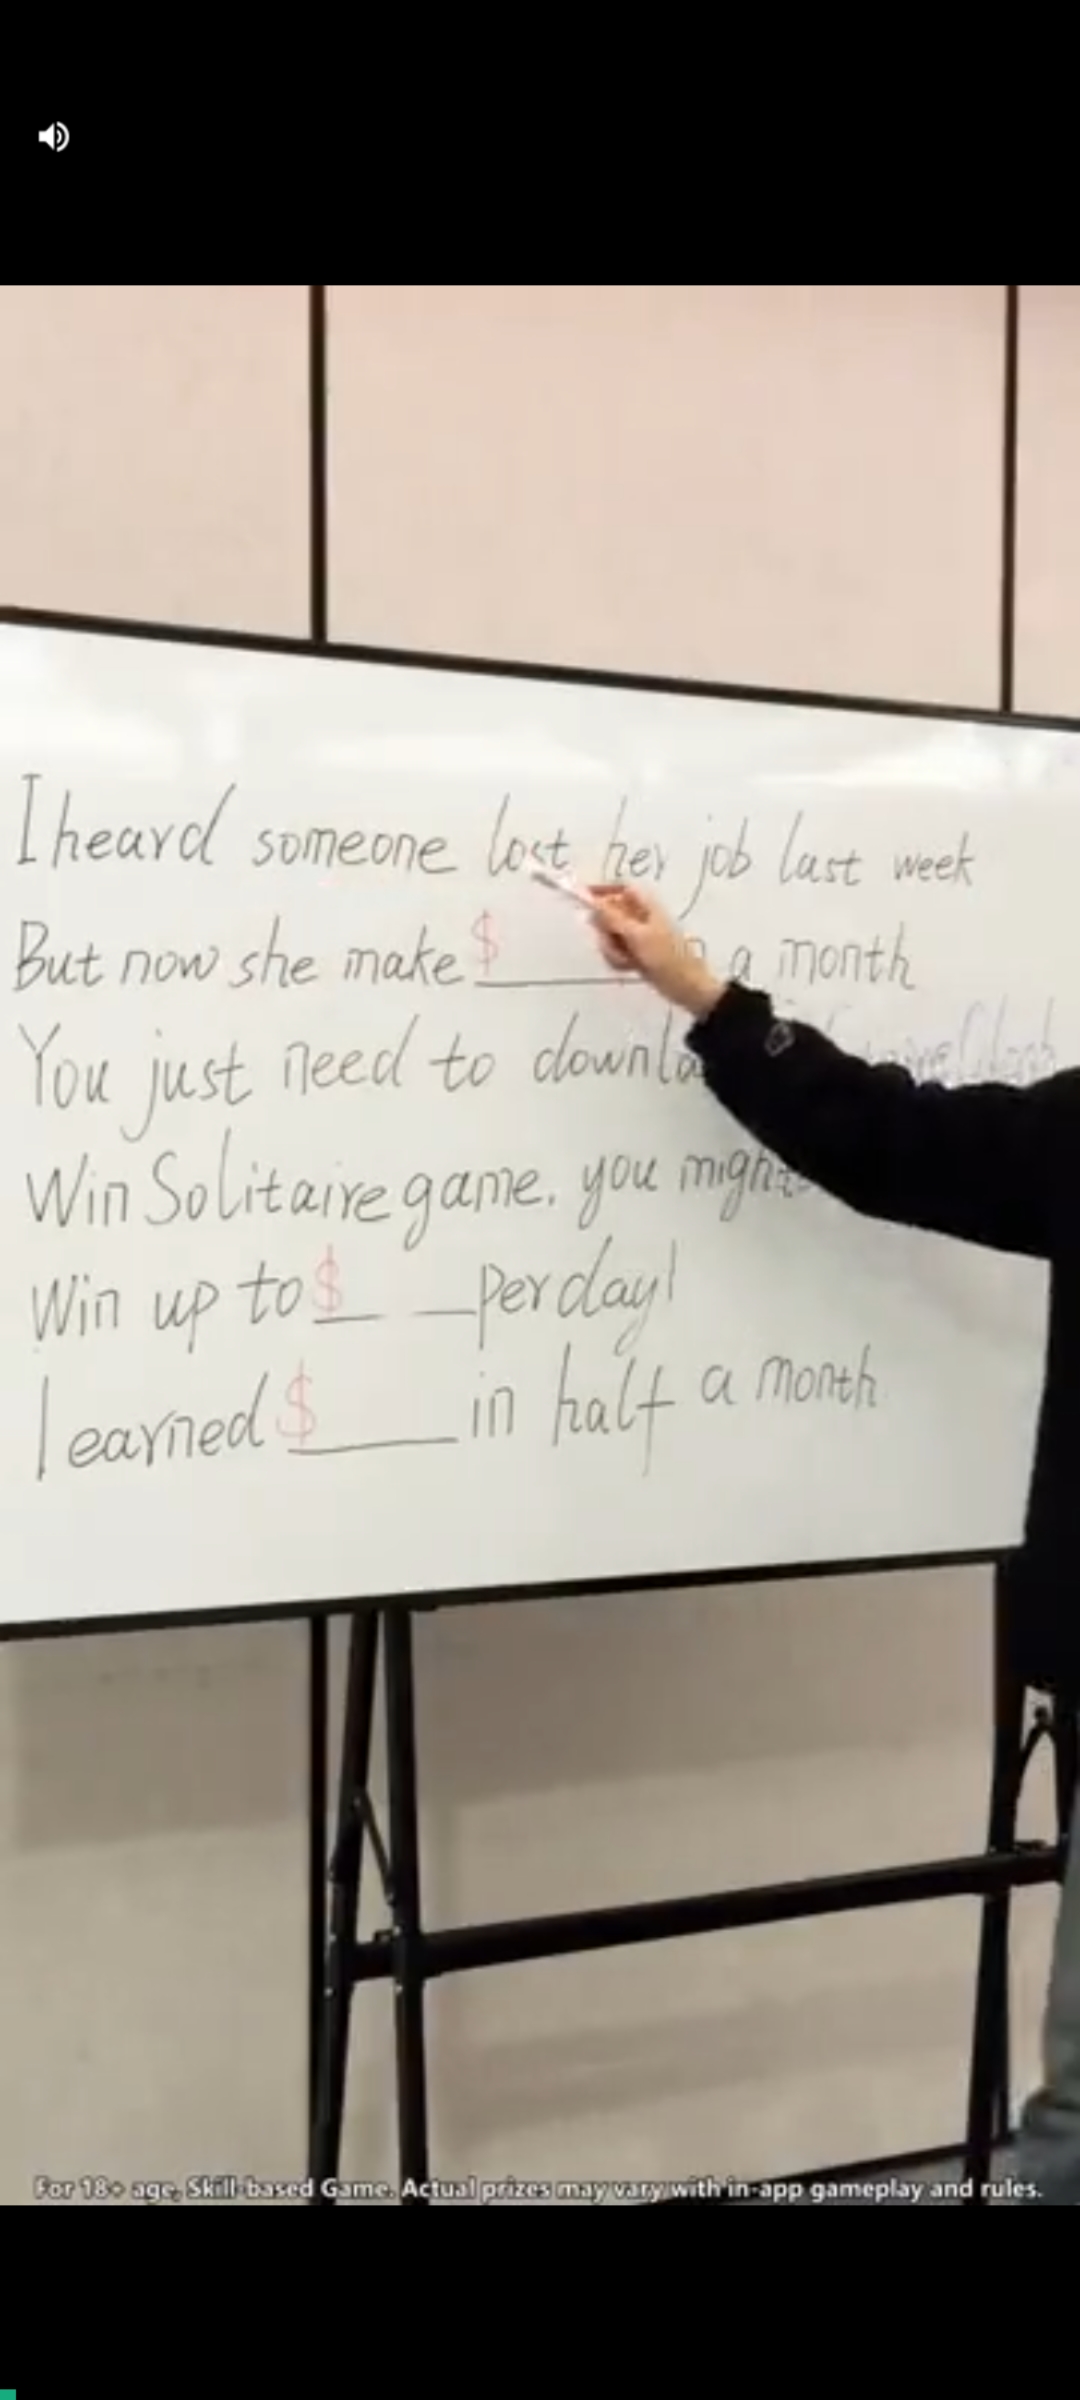 I heard someone lost her job last week
But now she make $ a month
You just need to
Win Solitaire game. you might
Win up to $ per day!
I earned $ in half a month
For 18+ age, Skill-based Game. Actual prizes may vary with in-app gameplay and rules.